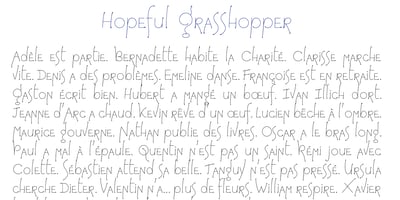 Hopeful Grasshopper
Adèle est partie. Bernadette habite la Charité. Clarisse marche
vite. Denis a des problèmes. Emeline danse. Françoise est en retraite.
Gaston écrit bien. Hubert a mangé un bœuf. Ivan Illich dort.
Jeanne d'Arc a chaud. Kevin rêve d'un œuf. Lucien bêche à l'ombre.
Maurice gouverne. Nathan publie des livres. Oscar a le bras long.
Paul a mal à l'épaule. Quentin n'est pas un saint. Rémi joue avec
Colette. Sébastien attend sa belle. Tanguy n'est pas pressé. Ursula
cherche Dieter. Valentin n'a... plus de fleurs. William respire. Xavier